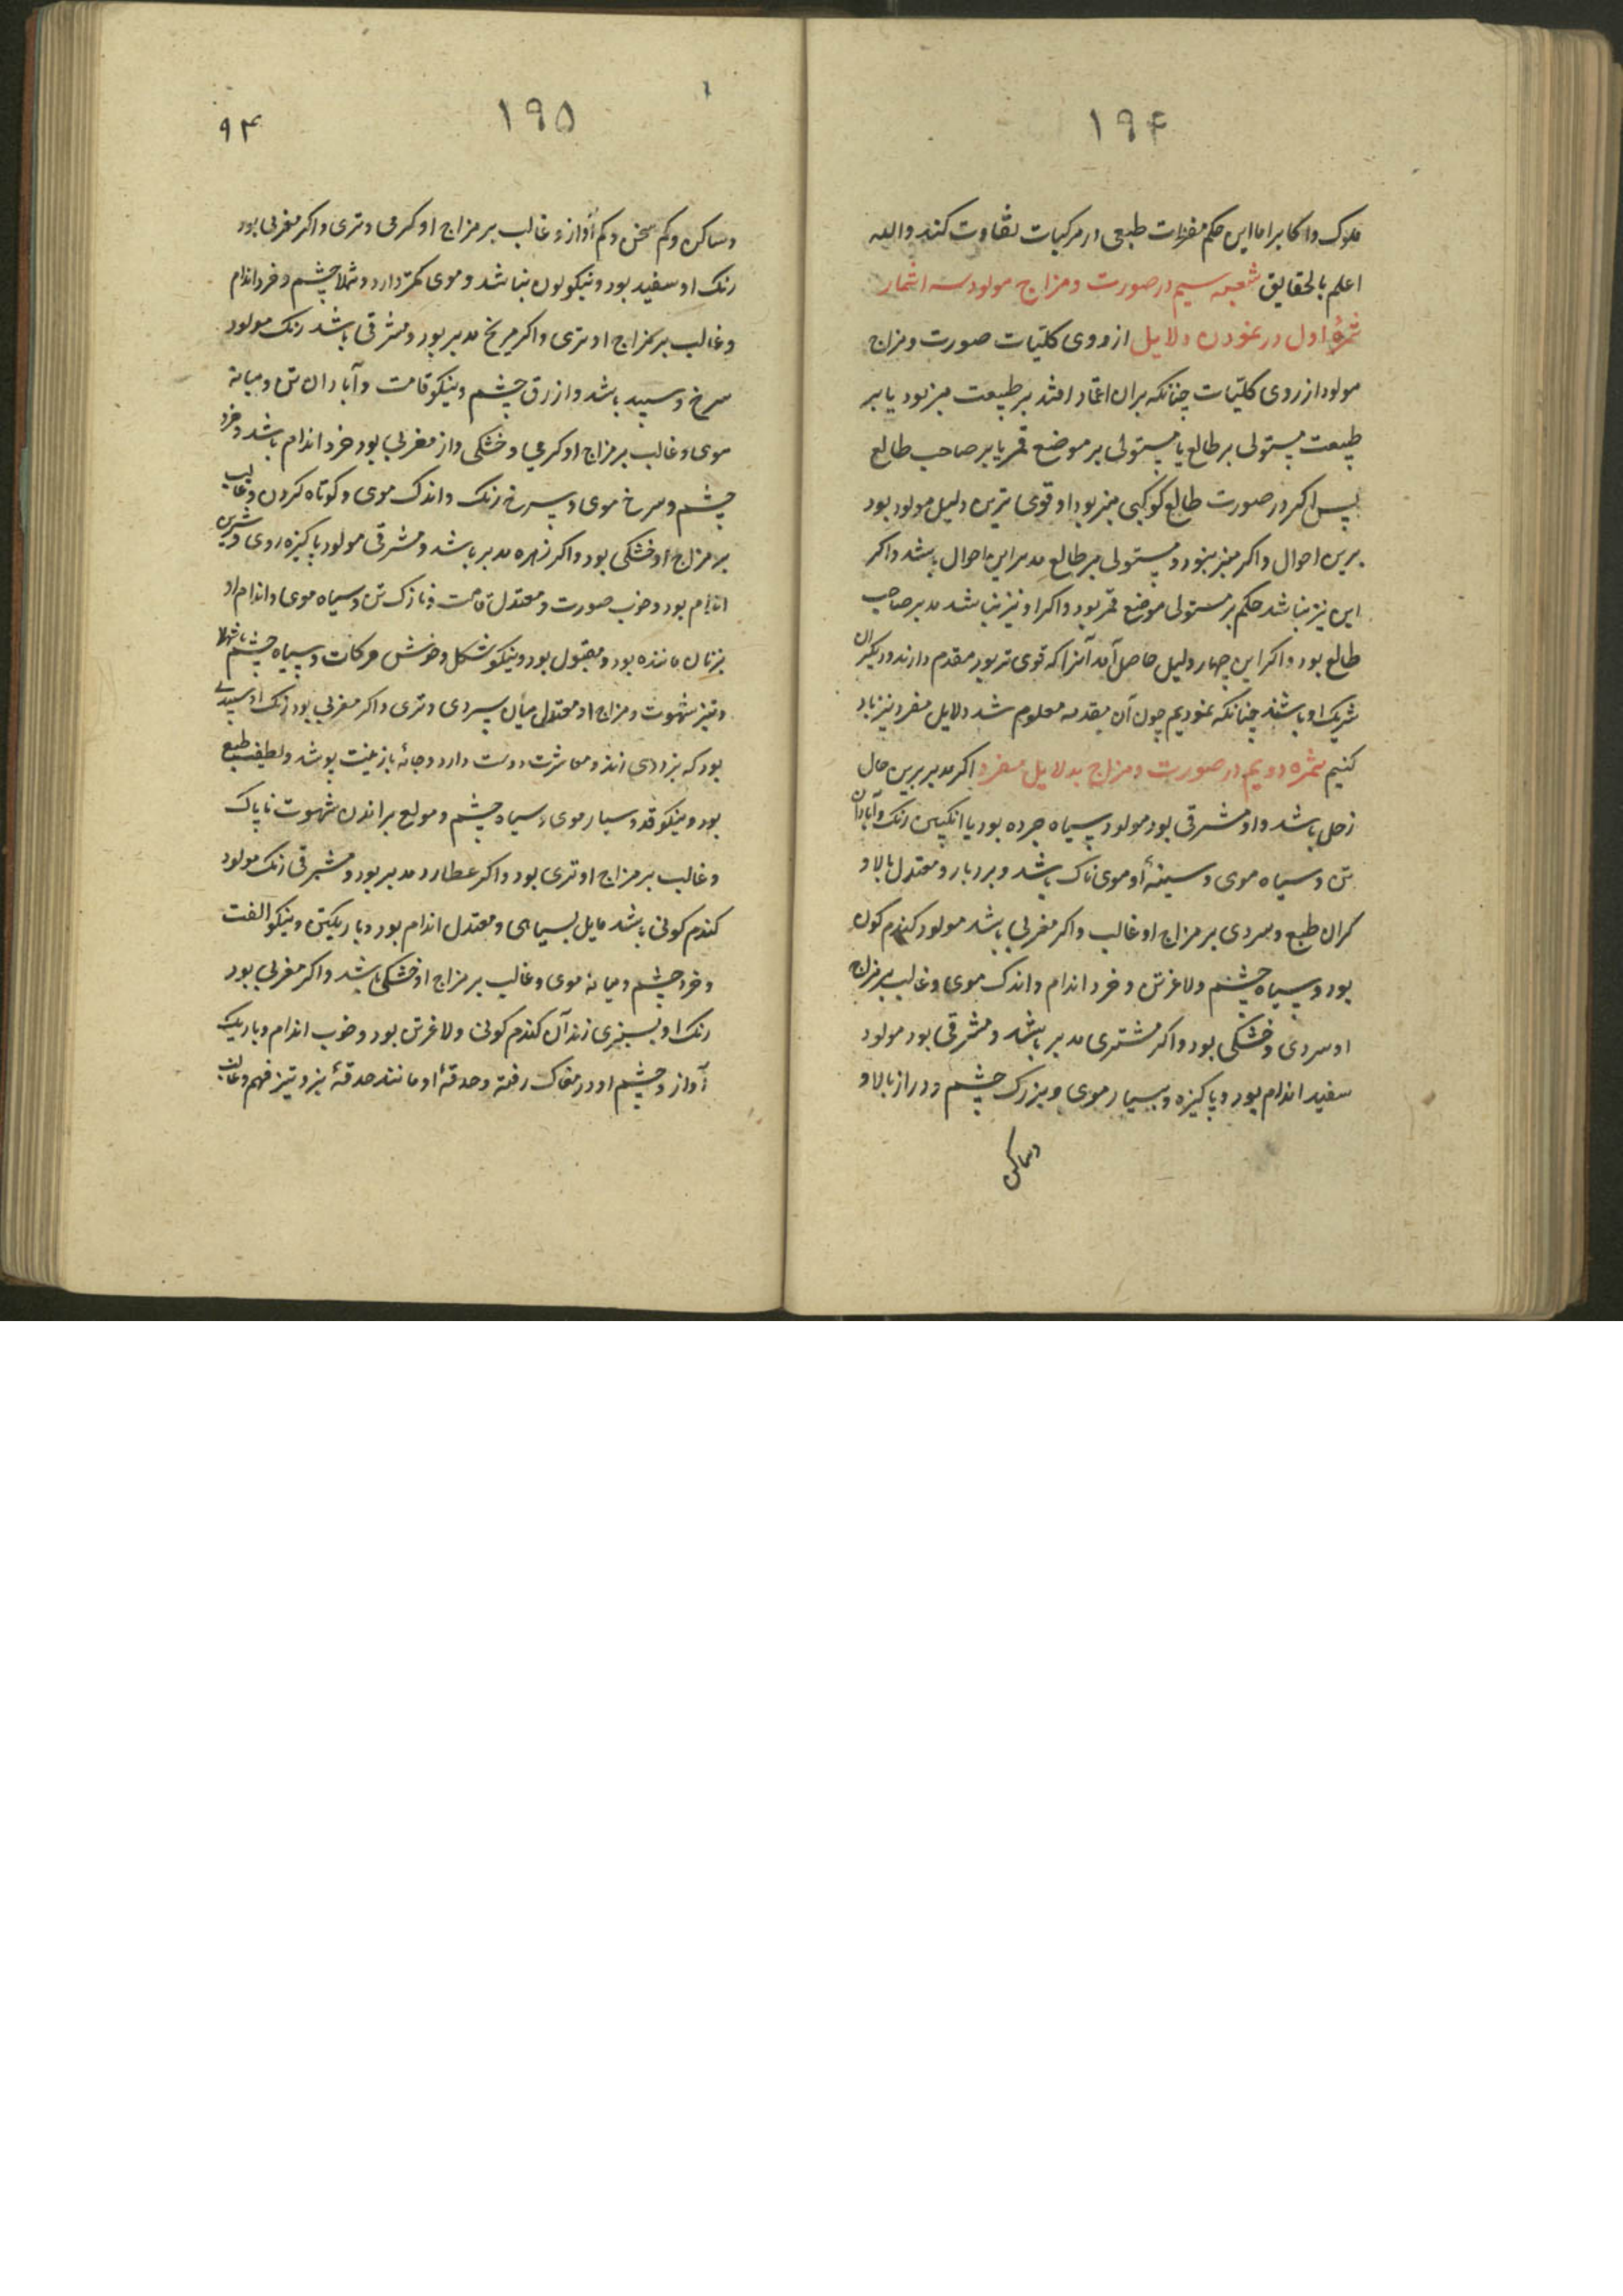 ۱۹۴
ملوک واکابر اما این حکم مفردات طبعی در مرکبات تفاوت کند والله
اعلم بالحقایق شعبه سیم در صورت ومزاج مولود سه اثمار
ثمرهٔ اول در نمودن دلایل از روی کلیات صورت ومزاج
مولود از روی کلیات چنانکه بران اعتماد افتد بر طبیعت مبتز بود یا بر
طبیعت مستولی بر طالع یا مستولی بر موضع قمر یا بر صاحب طالع
پس اکر در صورت طالع کوکبی مبتز بود او قوی ترین دلیل مولود بود
برین احوال واکر مبتز نبود ومستولی بر طالع مدبر این احوال باشد واکر
این نیز نباشد حکم بر مستولی موضع قمر بود واکر او نیز نباشد مدبر صاحب
طالع بود واکر این چهار دلیل حاصل آید آنرا که قوی تر بود مقدم دارند ودیکران
شریک او باشند چنانکه نمودیم چون آن مقدمه معلوم شد دلایل مفرد نیز یاد
کنیم ثمره دویم در صورت ومزاج بدلایل مفرد اکر مدبر برین حال
زحل باشد واو مشرقی بود مولود سیاه چرده بود یا انکبین رنک وآبادان
تن وسیاه موی وسینهٔ او موی ناک باشد وبردبار ومعتدل بالا و
کران طبع وسردی بر مزاج او غالب واکر مغربی باشد مولود کندم کون
بود وسیاه چشم ولاغر تن وخرد اندام واندک موی وغالب بر مزاج
او سردی وخشکی بود واکر مشتری مدبر باشد ومشرقی بود مولود
سفید اندام بود وپاکیزه وبسیار موی وبزرک چشم ودراز بالا و
وساکن
۱۹۵
۹۴
وساکن وکم سخن وکم آواز وغالب بر مزاج او کرمی وتری واکر مغربی بود
رنک او سفید بود ونیکو لون نباشد وموی کمتر دارد وشهلا چشم وخرد اندام
وغالب بر مزاج او تری واکر مریخ مدبر بود ومشرقی باشد رنک مولود
سرخ وسپید باشد وازرق چشم ونیکو قامت وآبادان تن ومیانه
موی وغالب بر مزاج او کرمی وخشکی واز مغربی بود خرد اندام باشد وخرد
چشم وسرخ موی وسرخ رنک واندک موی وکوتاه کردن وغالب
بر مزاج او خشکی بود واکر زهره مدبر باشد ومشرقی مولود پاکیزه روی وشیرین
اندام بود وخوب صورت ومعتدل قامت ونازک تن وسیاه موی واندام او
بزنان ماننده بود ومقبول بود ونیکو شکل وخوش حرکات وسیاه چشم یا شهلا
وتیز شهوت ومزاج او معتدل میان سردی وتری واکر مغربی بود رنک او سپیدی
بود که بزردی زند ومعاشرت دوست دارد وجامهٔ با زینت پوشد ولطیف طبع
بود ونیکو قد وبسیار موی وسیاه چشم ومولع براندن شهوت ناپاک
وغالب بر مزاج او تری بود واکر عطارد مدبر بود ومشرقی رنک مولود
کندم کونی باشد مایل بسیاهی ومعتدل اندام بود وباریکتن ونیکو الفت
وخرد چشم ومیانه موی وغالب بر مزاج او خشکی باشد واکر مغربی بود
رنک او بسبزی زند آن کندم کونی ولاغر تن بود وخوب اندام وباریک
آواز وچشم او در مغاک رفته وحدقهٔ او مانند حدقهٔ بز وتیز فهم وغالب